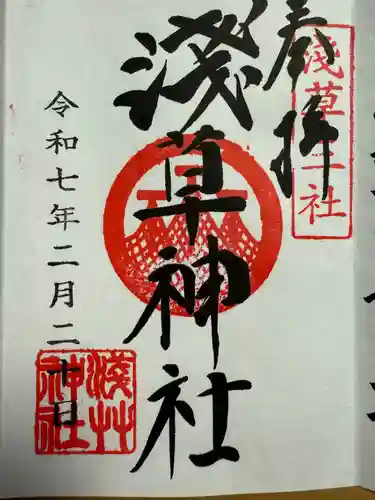 奉拝
淺草三社
淺草神社
令和七年二月二十日
淺草神社